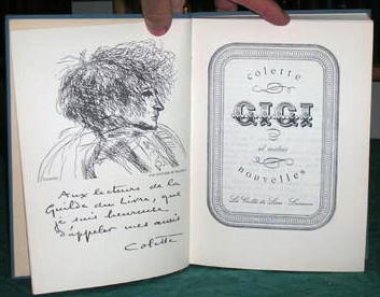 Aux lecteurs de la
Guilde du Livre, que
je suis heureuse
d'appeler mes amis
Colette
colette
GIGI
et autres
nouvelles
La Guilde du Livre Lausanne